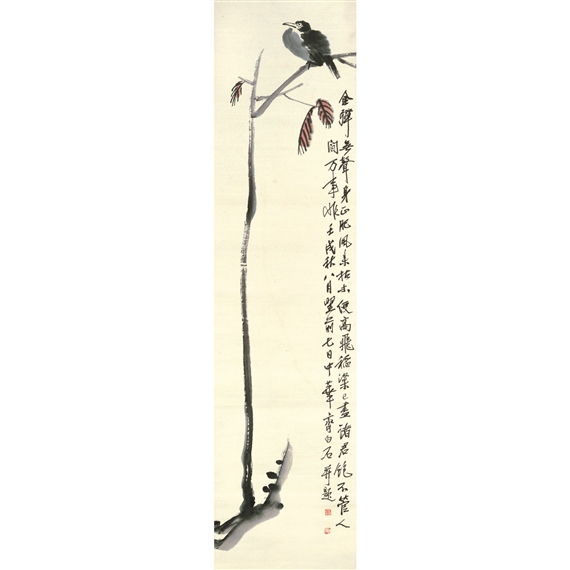 金彈無聲身正肥風来枯木便高飛稻粱已盡諸君飽不管人
間万事非壬戌秋八月望前七日中華齊白石并題